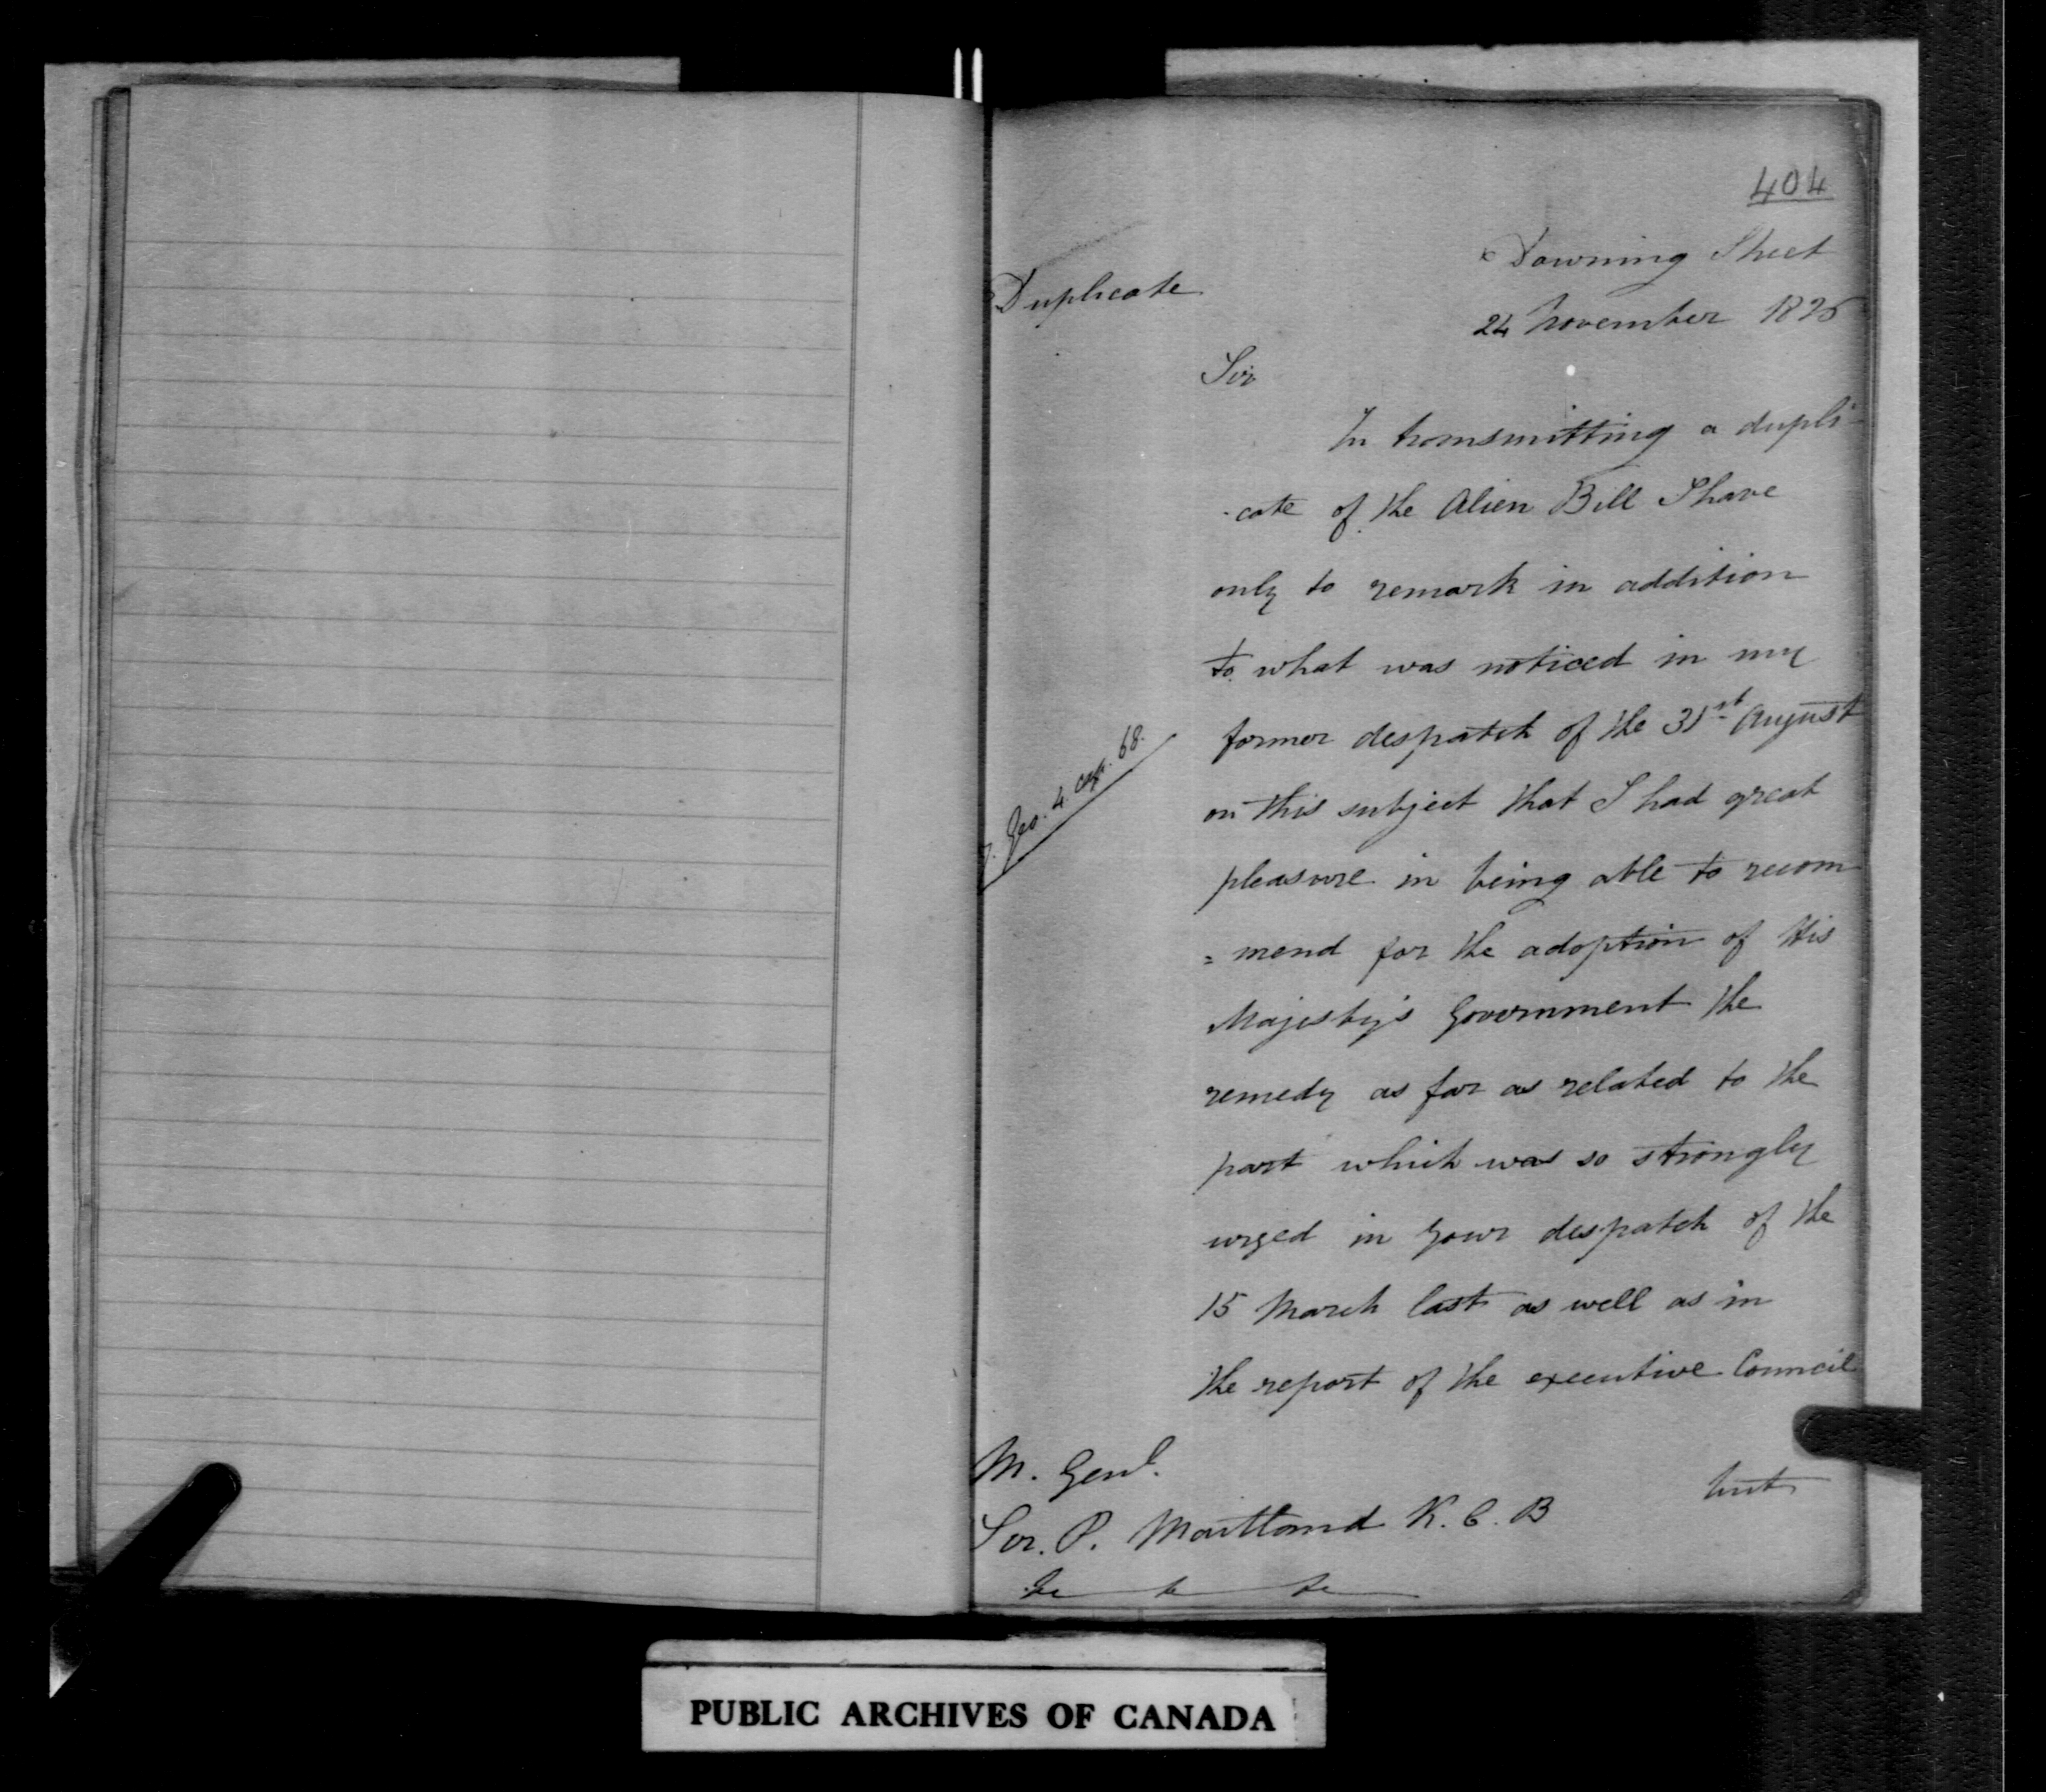 404
Duplicate
Downing Street
24 November 1826
Sir
In transmitting a dupli-
-cate of the Alien Bill I have
only to remark in addition
to what was noticed in my
former despatch of the 31st August
on this subject that I had great
pleasure in being able to recom
=mend for the adoption of His
Majesty's Government the
remedy as far as related to the
part which was so strongly
urged in your despatch of the
15 March last as well as in
the report of the executive Council
but
7. Geo. 4. cap. 68.
M. Genl.
Sir. P. Maitland K. C. B
PUBLIC ARCHIVES OF CANADA